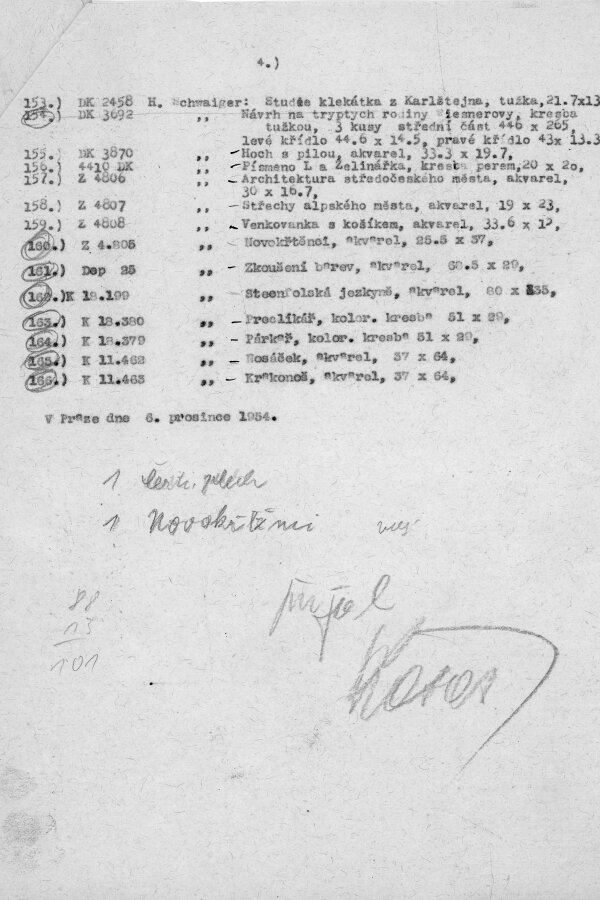 4.)
153.) DK 2458 H. Schwaiger: Studie klekátka z Karlštejna, tužka, 21.7x13
154.) DK 3692 ,, Návrh na tryptych rodiny Wiesnerovy, kresba
tužkou, 3 kusy střední část 446 x 265,
levé křídlo 44.6 x 14.5, pravé křídlo 43x 13.3
155.) DK 3870 ,, – Hoch s pilou, akvarel, 33.3 x 19.7,
156.) 4410 DK ,, – Písmeno L a Zelinářka, kresba perem, 20 x 20,
157.) Z 4806 ,, – Architektura středočeského města, akvarel,
30 x 16.7,
158.) Z 4807 ,, – Střechy alpského města, akvarel, 19 x 23,
159.) Z 4808 ,, – Venkovanka s košíkem, akvarel, 33.6 x 19,
160.) Z 4.805 ,, – Novokřtěnci, akvarel, 25.5 x 37,
161.) Dep 25 ,, – Zkoušení barev, akvarel, 62.5 x 29,
162.) K 18.199 ,, – Steenfolská jezkyně, akvarel, 80 x 335,
163.) K 18.380 ,, – Preclíkář, kolor. kresba 51 x 29,
164.) K 18.379 ,, – Párkař, kolor. kresba 51 x 29,
165.) K 11.462 ,, – Nosáček, akvarel, 37 x 64,
166.) K 11.463 ,, – Krakonoš, akvarel, 37 x 64,
V Praze dne 6. prosince 1954.
1
1 Novokřtěnci
88
13
101